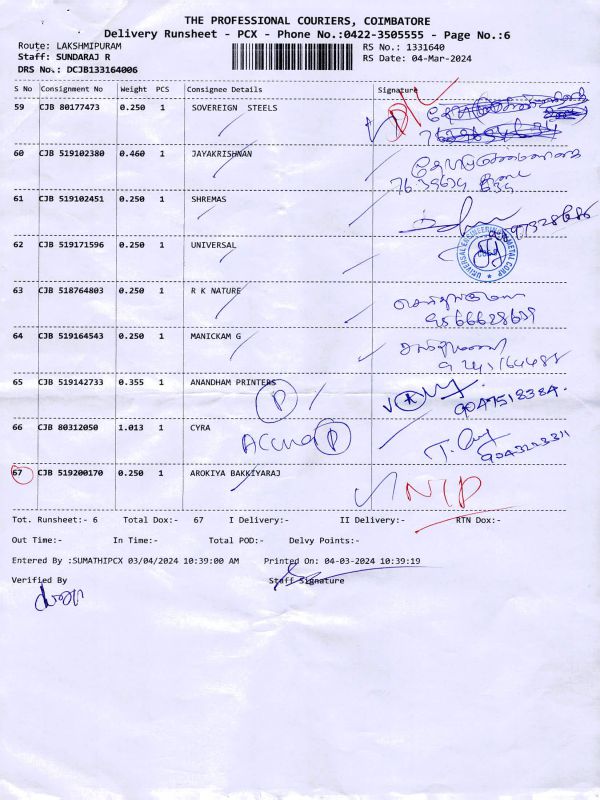 THE PROFESSIONAL COURIERS, COIMBATORE
Delivery Runsheet - PCX - Phone No.:0422-3505555 - Page No.:6
Route: LAKSHMIPURAM RS No.: 1331640
Staff: SUNDARAJ R RS Date: 04-Mar-2024
DRS No.: DCJB133164006
S No Consignment No Weight PCS Consignee Details Signature
59 CJB 80177473 0.250 1 SOVEREIGN STEELS
60 CJB 519102380 0.460 1 JAYAKRISHNAN
61 CJB 519102451 0.250 1 SHREMAS
62 CJB 519171596 0.250 1 UNIVERSAL
63 CJB 518764803 0.250 1 R K NATURE
9566628639
64 CJB 519164543 0.250 1 MANICKAM G
65 CJB 519142733 0.355 1 ANANDHAM PRINTERS
P 9047518384.
66 CJB 80312050 1.013 1 CYRA
P
67 CJB 519200170 0.250 1 AROKIYA BAKKIYARAJ
Tot. Runsheet:- 6 Total Dox:- 67 I Delivery:- II Delivery:- RTN Dox:-
Out Time:- In Time:- Total POD:- Delvy Points:-
Entered By :SUMATHIPCX 03/04/2024 10:39:00 AM Printed On: 04-03-2024 10:39:19
Verified By Staff Signature